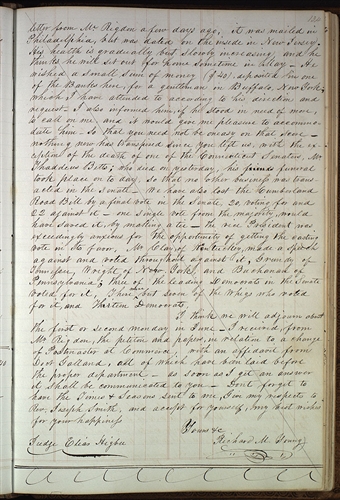 letter from Mr Rigdon a few days ago, it was mailed in
Philadelphia, but was dated on the inside in New Jersey.
His health is gradually but slowly increasing and he
thinks he will set out for home sometime in May. He
wished a small sum of money ($40) deposited in one
of the Banks here, for a gentleman in Buffalo New York;
which I have attended to according to his direction and
request. I was informed him, if he stood in need of more,
to call on me, and it would give me pleasure to accommo-
date him. So that you need not be uneasy on that score—
nothing new has transpired since you left us, with the ex-
ception of the death of one of the Connecticut Senators, Mr
Thaddeus Betts; who died on yesterday, his funeral
took place on to day, so that no other business was trans-
acted in the Senate— We have also lost the Cumberland
Road Bill by a final vote in the Senate, 20, voting for and
22 against it— one single vote from the majority, would
have saved it, by making a tie— the vice President was
exceeding by anxious for the opportunity of getting the casting
vote in its favor. Mr Clay, of Kentucky, made a speech
against and voted throughout against it, Grundy of
Tennessee, Wright of New York, and Buchanan of
Pennsylvania; three of the leading Democrats in the Senate
voted for it, There but seven of the Whigs who voted
for it, and Thirteen Democrats,
I think we will adjourn about
the first or second monday in June— I received, from
Mr Rigdon, the petition and papers, in relation to a change
of Postmaster at Commerce, with an affidavit from
Doct Galland, all of which have been laid before
the proper department— as soon as I get an answer
it shall be communicated to you— Dont forget to
have the Times & Seasons sent to me, Give my respects to
Rev. Joseph Smith, and accept for yourself, my best wishes
for your happiness
Yours &c
Judge Elias Higbee
Richard M. Young